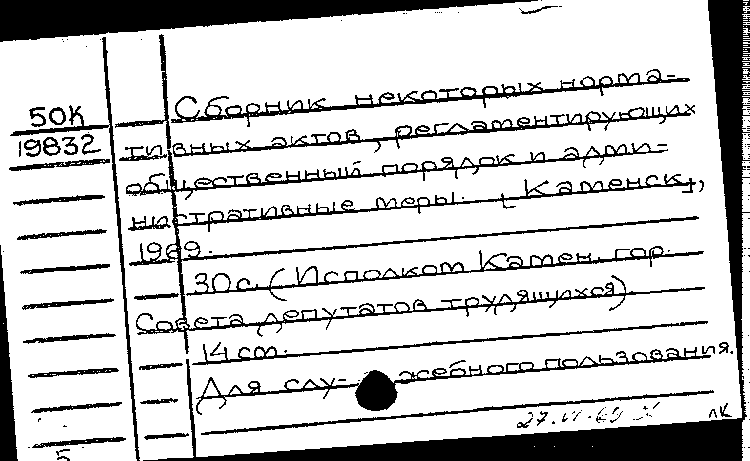 50К
19832
Сборник некоторых норма-
тивных актов, регламентирующих
общественный порядок и адми-
нистративные меры. [Каменск],
1969.
30с. (Исполком Камен. гор.
Совета депутатов трудящихся).
14 см.
Для слу- жебного пользования.
27.VI.69
лк
5